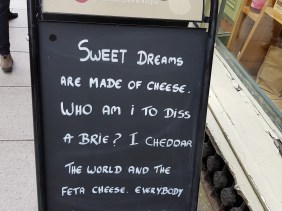 Sweet Dreams
are made of cheese.
Who am i to diss
a Brie? I Cheddar
the world and the
Feta cheese. Everybody